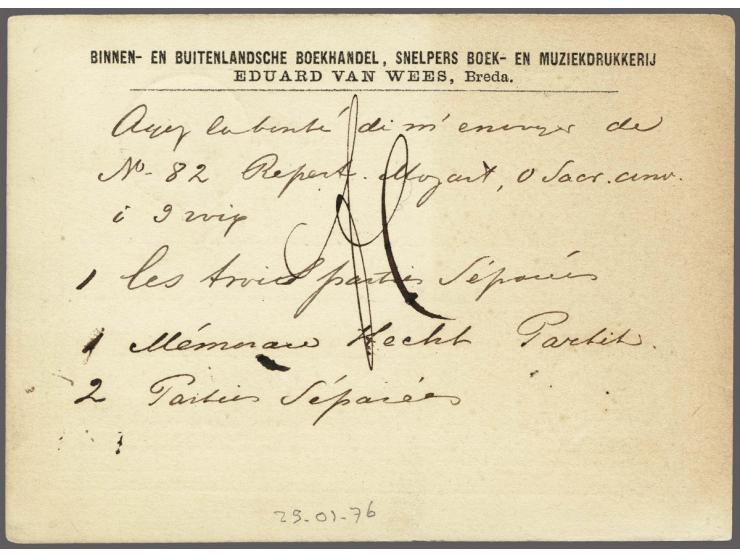 BINNEN- EN BUITENLANDSCHE BOEKHANDEL, SNELPERS BOEK- EN MUZIEKDRUKKERIJ
EDUARD VAN WEES, Breda.
Ayez la bonté de m'envoyer de
No- 82 Repert. Mozart, O Sacr. conv.
à 3 voix
1 les trois parties Séparées
1 Mémorare Hecht Partit.
2 Parties Séparées
29-01-76